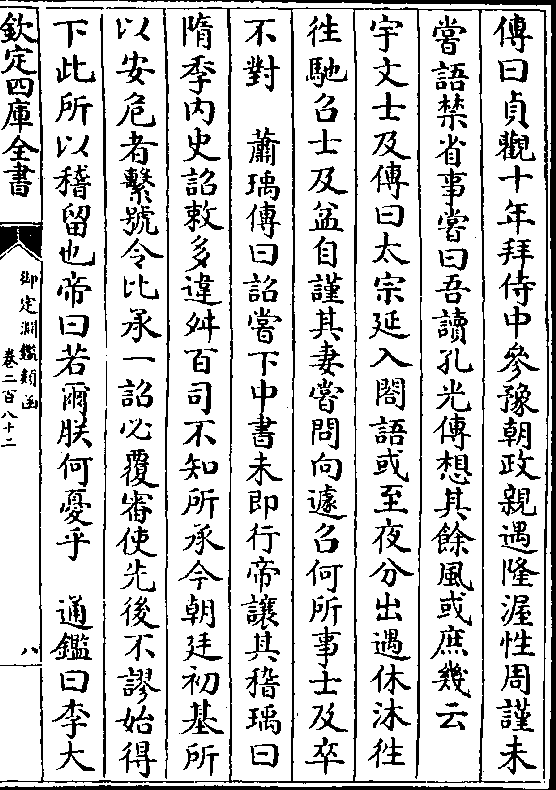 傳曰貞觀十年拜侍中參豫朝政親遇隆渥性周謹未
嘗語禁省事嘗曰吾讀孔光傳想其餘風或庶幾云
宇文士及傳曰太宗延入閤語或至夜分出遇休沐徃
徃馳召士及益自謹其妻嘗問向遽召何所事士及卒
不對　蕭瑀傳曰詔嘗下中書未即行帝讓其稽瑀曰
隋季内史詔敕多違舛百司不知所承今朝廷初基所
以安危者繫號令比承一詔必覆審使先後不謬始得
下此所以稽留也帝曰若爾朕何憂乎　通鑑曰李大
欽定四庫全書
御定淵鑑類函
卷二百八十二
八